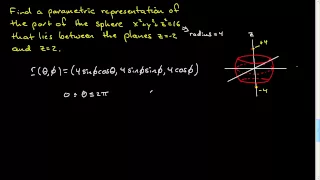 Find a parametric representation of
the part of the sphere x²+y²+z²=16
radius = 4
that lies between the planes z=-2
and z=2.
r(θ,φ)=(4sinφcosθ, 4sinφsinθ, 4cosφ)
0 ≤ θ ≤ 2π
z
4
-4